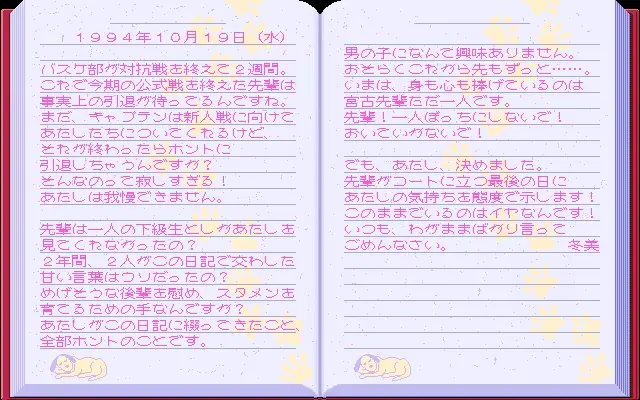 1994年10月19日(水)
バスケ部が対抗戦を終えて2週間。
これで今期の公式戦を終えた先輩は
事実上の引退が待ってるんですね。
まだ、キャプテンは新人戦に向けて
あたしたちについてくれるけど、
それが終わったらホントに
引退しちゃうんですか?
そんなのって寂しすぎる!
あたしは我慢できません。
先輩は一人の下級生としかあたしを
見てくれなかったの?
2年間、2人がこの日記で交わした
甘い言葉はウソだったの?
めげそうな後輩を慰め、スタメンを
育てるための手なんですか?
あたしがこの日記に綴ってきたこと、
全部ホントのことです。
男の子になんて興味ありません。
おそらくこれから先もずっと……。
いまは、身も心も捧げているのは
宮古先輩ただ一人です。
先輩!一人ぼっちにしないで!
おいていかないで!
でも、あたし、決めました。
先輩がコートに立つ最後の日に
あたしの気持ちを態度で示します!
このままでいるのはイヤなんです!
いつも、わがままばかり言って
ごめんなさい。 冬美